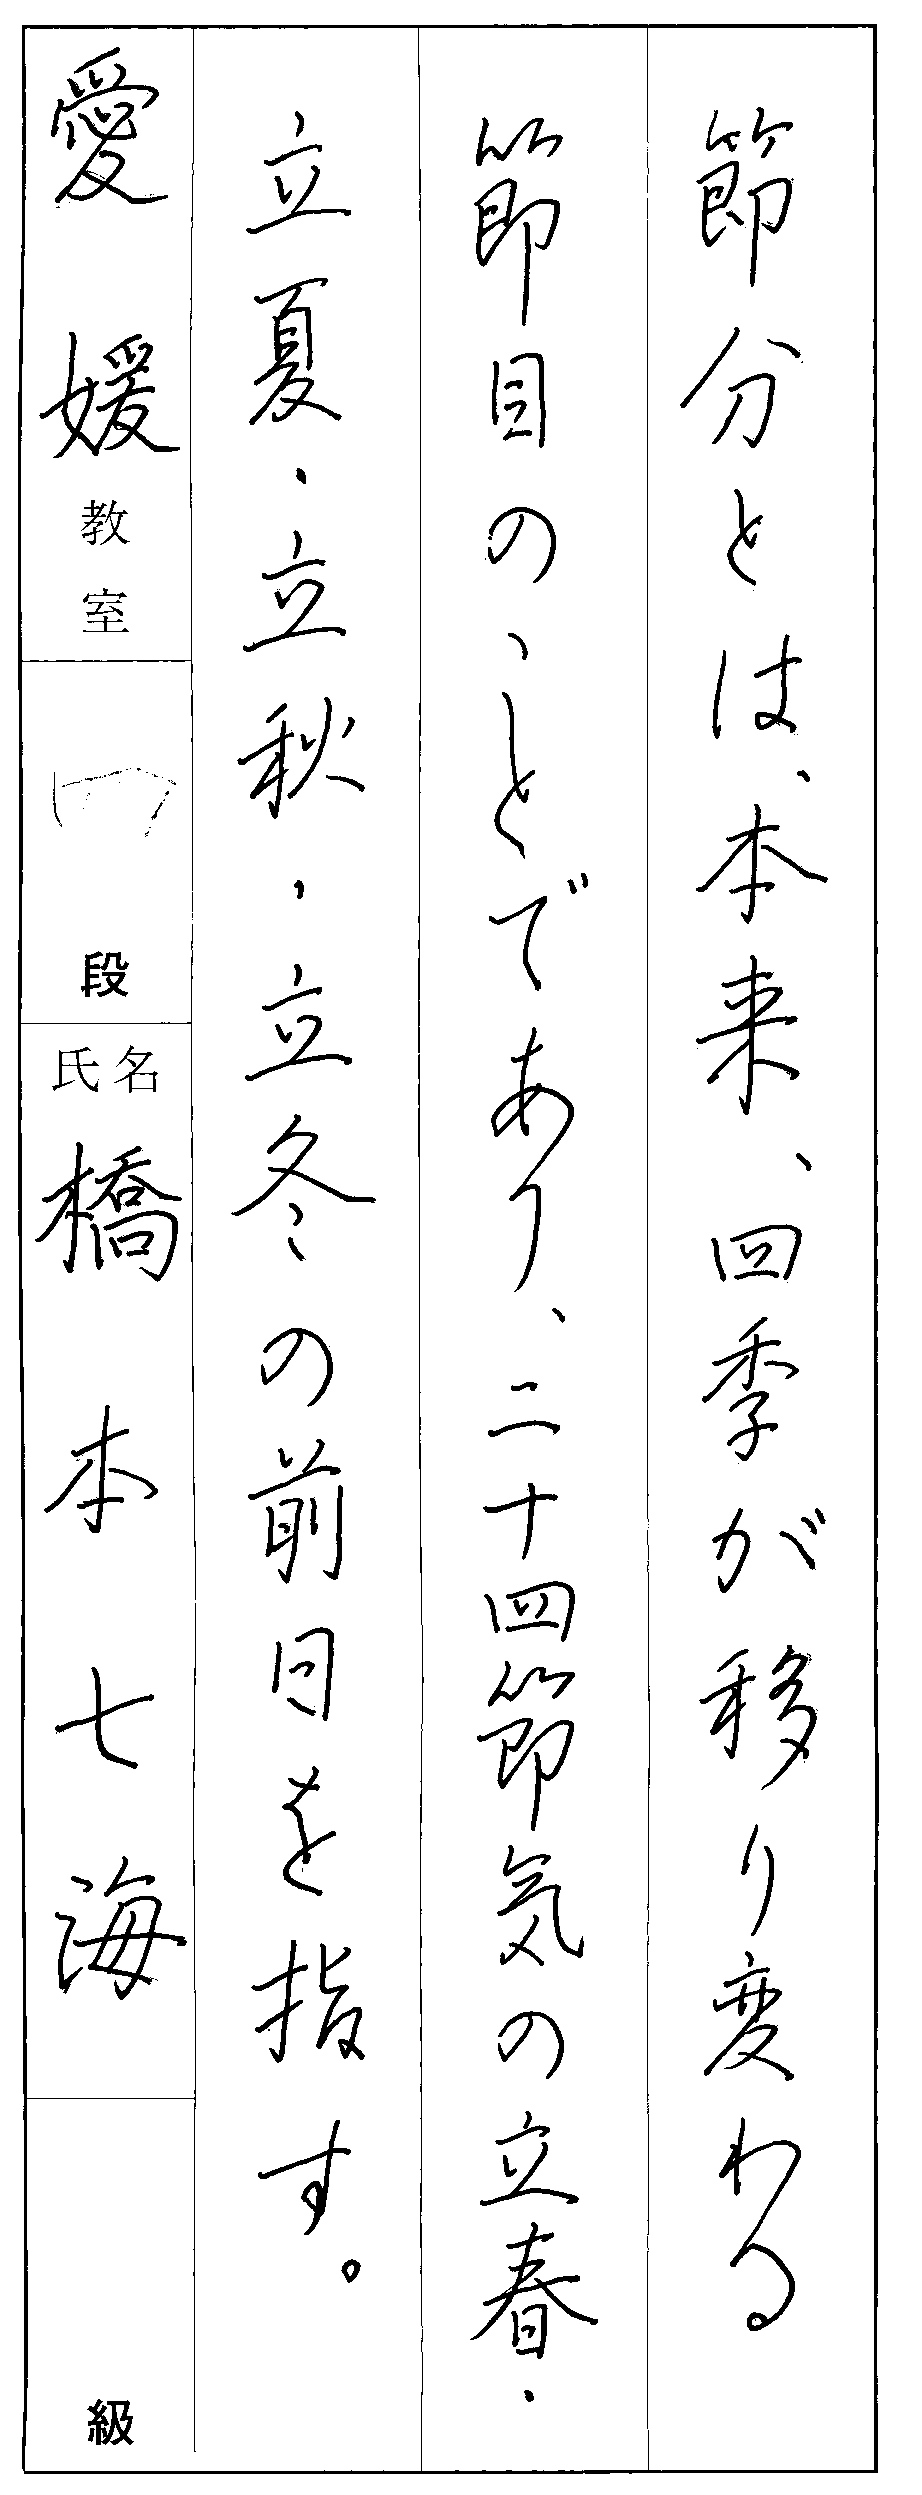 節分とは、本来、四季が移り変わる
節目のことであり、二十四節気の立春・
立夏・立秋・立冬の前日を指す。
愛媛教室
段
氏名
橋本七海
級